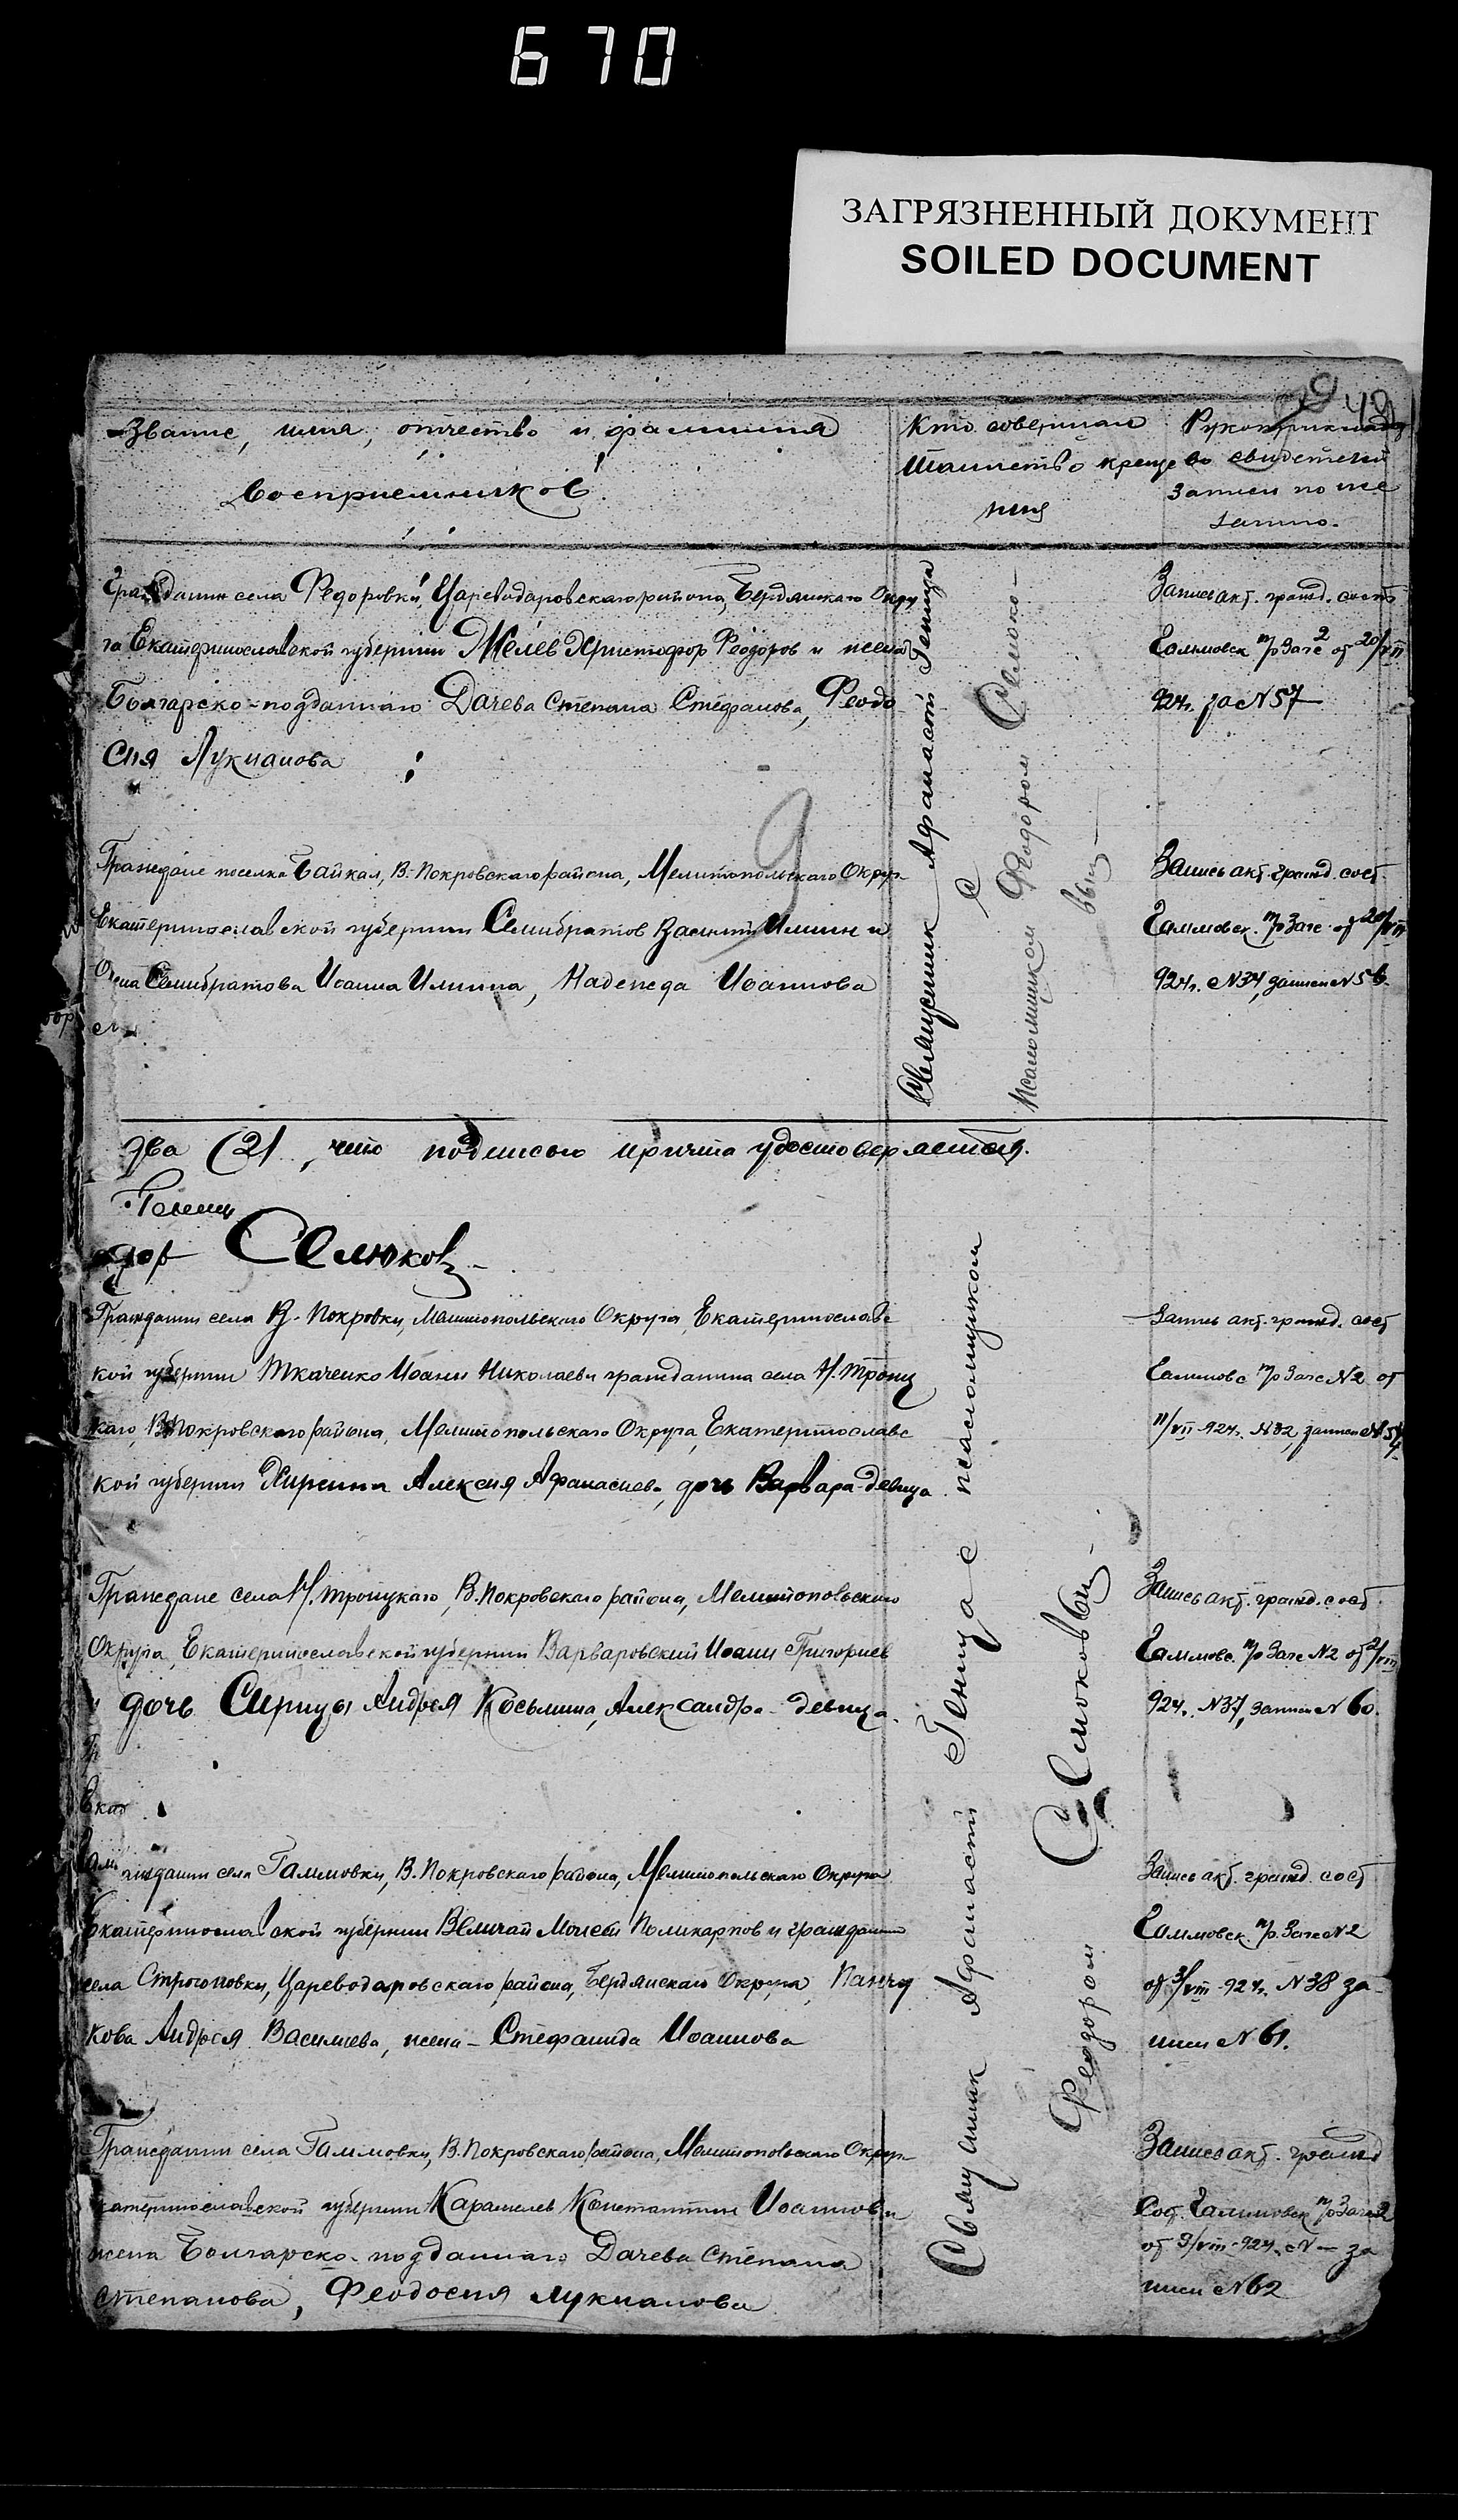 670
ЗАГРЯЗНЕННЫЙ ДОКУМЕНТ
SOILED DOCUMENT
49
Звание, имя, отчество и фамилия
восприемников.
Кто совершал
таинство креще
ния
Рукоприкладс
во свидетелей
записи по же
ланию.
Гражданин села Федоровки, Цареводаровскаго района, Бердянскаго Окру
га Екатеринославской губернии Желев Христофор Феодоров и жена
Болгарско-подданнаго Дачева Степана Стефанова, Феодо
сия Лукианова
Запись акт. гражд. сост
Галимовск п/р Загс 2 от 20/VII
924г. за №57
Граждане поселка Байкал, В.-Покровскаго района, Мелитопольскаго Округ
Екатеринославской губернии Семибратов Василий Илиин и
жена Семибратова Иоанна Илиина, Надежда Иоаннова
Запись акт. гражд. сост.
Галимовск. п/р Загс от 20/VII
924г. №34, записи №58.
Священник Афанасий Геница
с
псаломщиком Феодором Селюко-
вым
два (2), что подписью причта удостоверяется.
Гениц
одор Селюковъ
Гражданин села В.-Покровки, Мелитопольскаго Округа, Екатеринославс
кой губернии Ткаченко Иоанн Николаев и гражданина села Н. Троиц
каго, В. Покровскаго района, Мелитопольскаго Округа, Екатеринославс
кой губернии Алексия Афанасиева, дочь Варвара-девица
Запись акт. гражд. сост
Галимовс п/р Загс №2 от
11/VII-924г. №32, записи №54.
Граждане села Н. Троицкаго, В. Покровскаго района, Мелитопольскаго
Округа, Екатеринославской губернии Варваровский Иоанн Григориев
и дочь Сирицы Андрея Косьмина, Александра-девица.
Запись акт. гражд. сост.
Галимовс. п/р Загс №2 от 2/VIII
924г. №37, записи №60.
Екат
гражданин села Галимовки, В. Покровскаго района, Мелитопольскаго Округа
Екатеринославской губернии Величай Моисей Поликарпов и гражданин
села Строгоновки, Цареводаровскаго района, Бердянскаго Округа, Панчу
кова Андрея Василиева, жена - Стефанида Иоаннова
Запись акт. гражд. сост
Галимовск. п/р. Загс №2
от 3/VIII-924г. №38 за-
писи №61.
Гражданин села Галимовки, В. Покровскаго района, Мелитопольскаго Округ
катеринославской губернии Карамелев Константин Иоаннов и
жена Болгарско-подданнаго Дачева Степана
Степанова, Феодосия Лукианова
Запись акт. гражд
Сост. Галимовск п/р Загс 2
от 9/VIII-924г. № - за
писи №62
Священник Афанасий Геница с псаломщиком
Феодором Селюковым-